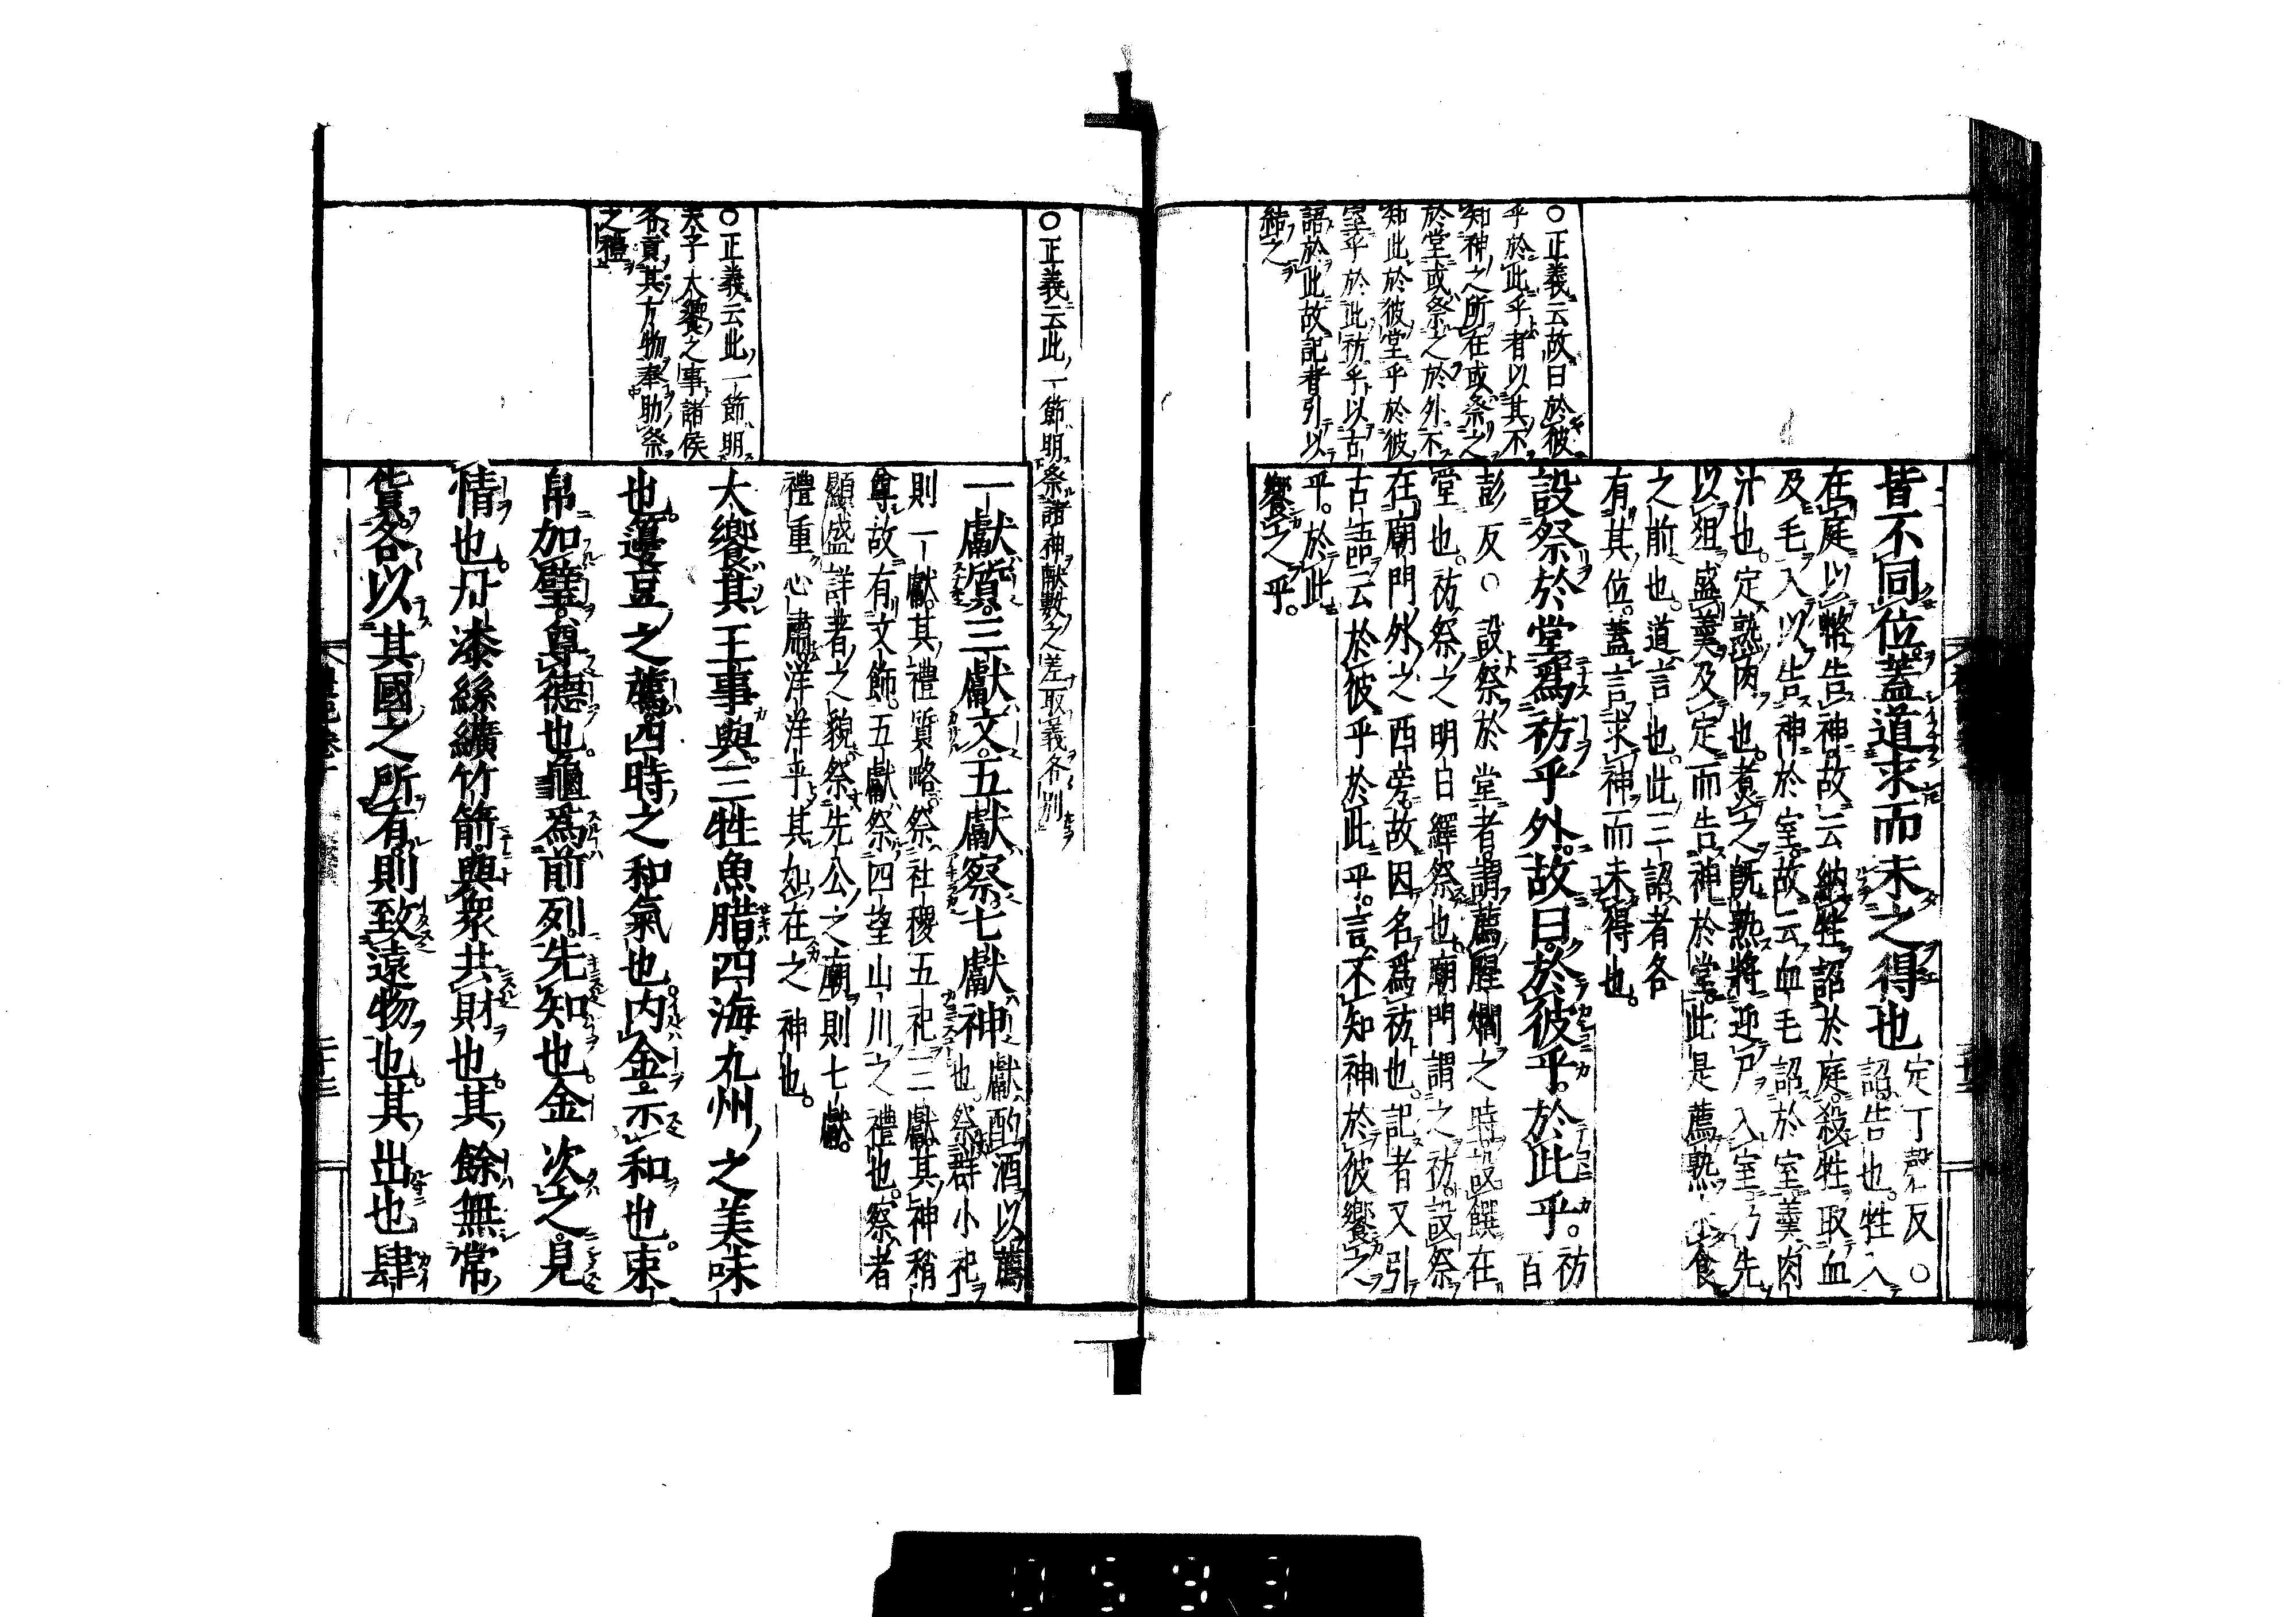 ○正義云故曰於彼
乎於此乎者以其不
知神之所在或祭之
於堂或祭之於外不
知此於彼堂乎於彼
室乎於此祊乎以古
語於此故記者引以
結之
皆不同位蓋道求而未之得也
定丁磬反○
詔告也牲入
在庭以幣告神故云納牲詔於庭殺牲取血
及毛入以告神於室故云血毛詔於室羹肉
汁也定熟肉也煮之既熟將迎尸入室乃先
以俎盛羹及定而告神於堂此是薦熟未食
之前也道言也此三詔者各
有其位蓋言求神而未得也
設祭於堂爲祊乎外故曰於彼乎於此乎
祊
百
彭反○設祭於堂者謂薦腥爓之時設饌在
堂也祊祭之明日繹祭也廟門謂之祊設祭
在廟門外之西旁故因名爲祊也記者又引
古語云於彼乎於此乎言不知神於彼饗之
乎於此
饗之乎
○正義云此一節明祭諸神献數之差取義各別
一獻質三獻文五獻察七獻神
獻酌酒以薦
也祭群小祀
則一獻其禮質略祭社稷五祀三獻其神稍
尊故有文飾五獻祭四望山川之禮也察者
顯盛詳著之貌祭先公之廟則七獻
禮重心肅洋洋乎其如在之神也
○正義云此一節明
天子大饗之事諸侯
各貢其方物奉助祭
之禮
大饗其王事與三牲魚腊四海九州之美味
也籩豆之薦四時之和氣也内金示和也束
帛加璧尊德也龜爲前列先知也金次之見
情也丹漆絲纊竹箭與衆共財也其餘無常
貨各以其國之所有則致遠物也其出也肆